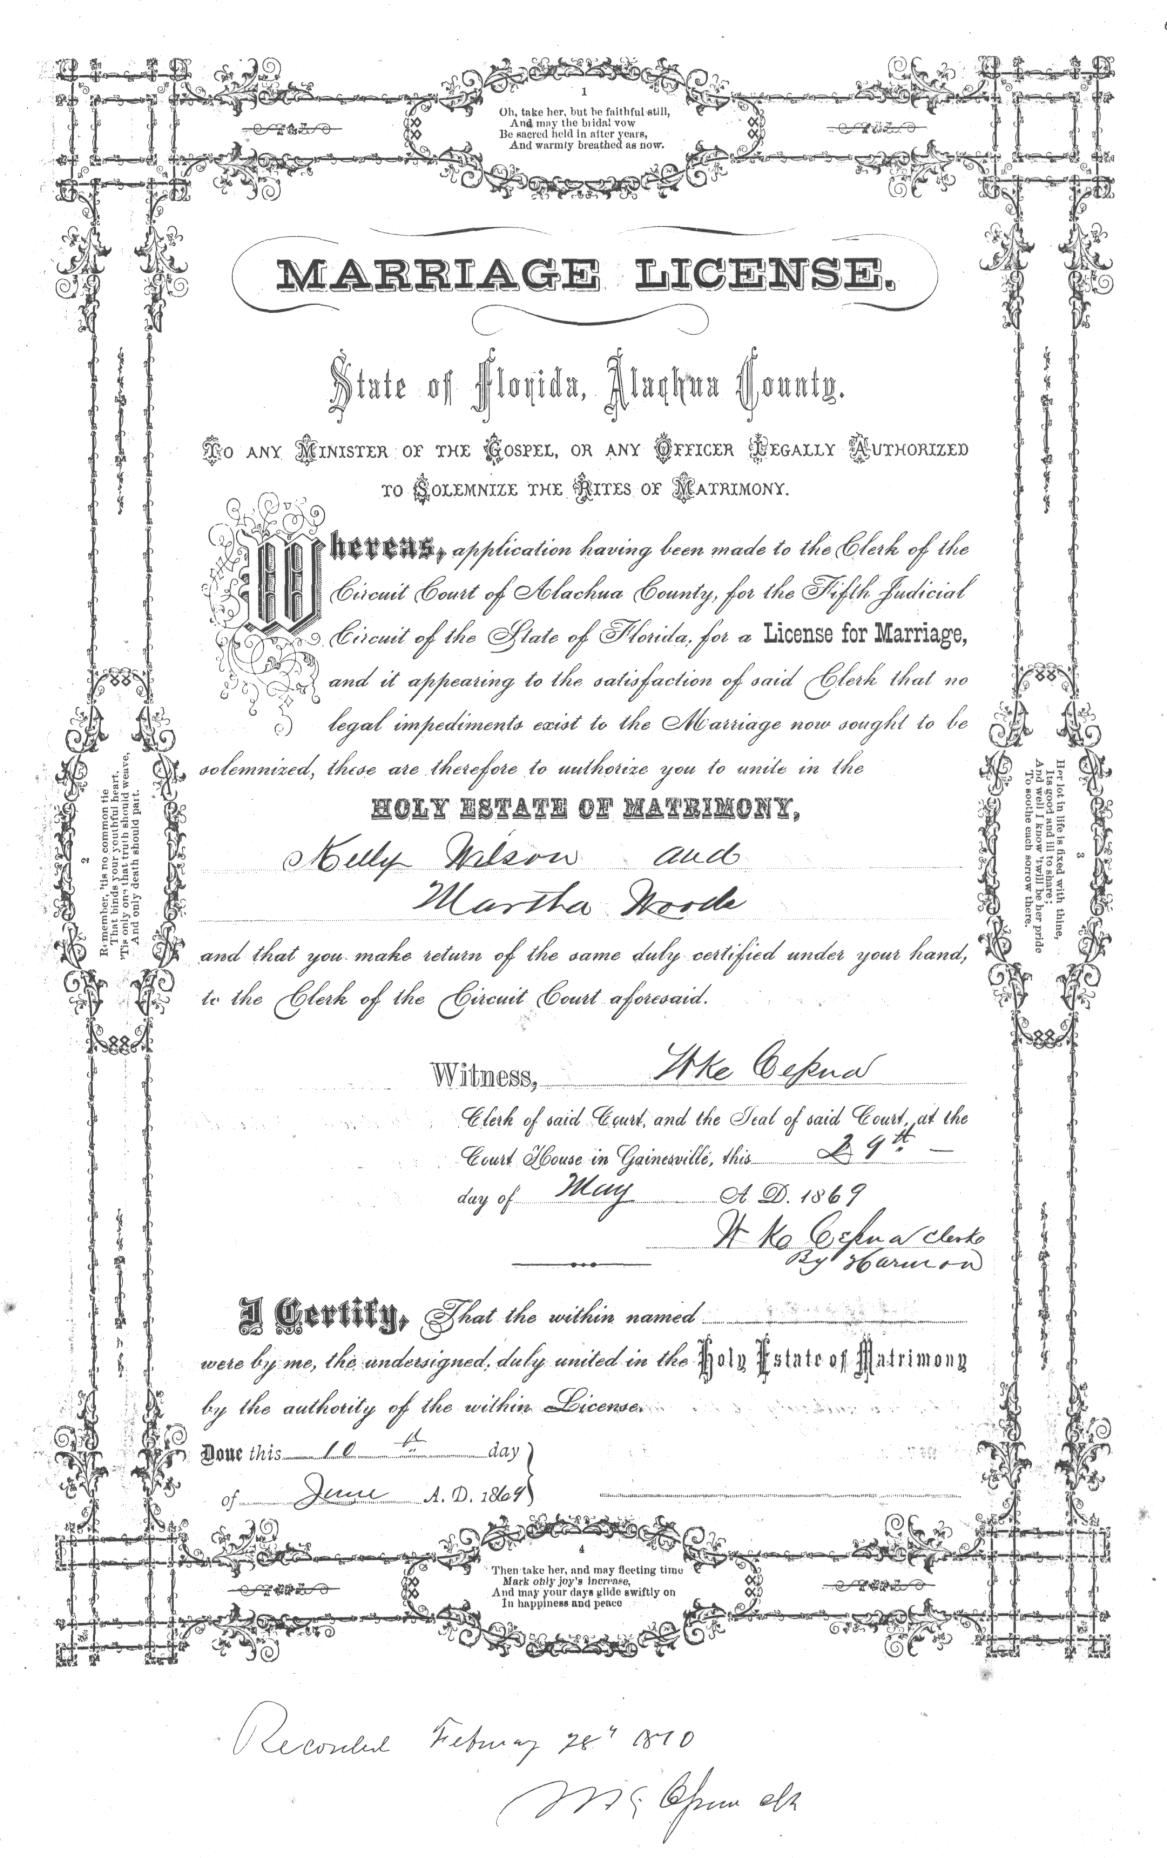 1
Oh, take her, but be faithful still,
And may the bridal vow
Be sacred held in after years,
And warmly breathed as now.
MARRIAGE LICENSE.
State of Florida, Alachua County.
TO ANY MINISTER OF THE GOSPEL, OR ANY OFFICER LEGALLY AUTHORIZED
TO SOLEMNIZE THE RITES OF MATRIMONY.
Whereas, application having been made to the Clerk of the
Circuit Court of Alachua County, for the Fifth Judicial
Circuit of the State of Florida, for a License for Marriage,
and it appearing to the satisfaction of said Clerk that no
legal impediments exist to the Marriage now sought to be
solemnized, these are therefore to authorize you to unite in the
HOLY ESTATE OF MATRIMONY,
Kelly Wilson and
Martha Woods
and that you make return of the same duly certified under your hand,
to the Clerk of the Circuit Court aforesaid.
2
Remember, 'tis no common tie
That binds your youthful heart,
'Tis only one that truth should weave,
And only death should part.
3
Her lot in life is fixed with thine,
Its good and ill to share;
And well I know 'twill be her pride
To soothe each sorrow there.
Witness,
Clerk of said Court, and the Seal of said Court, at the
Court House in Gainesville, this 29th
day of May A. D. 1869
Clerk
By Harmon
I Certify, That the within named
were by me, the undersigned, duly united in the Holy Estate of Matrimony
by the authority of the within License.
Done this 10th day
of June A. D. 1869
4
Then take her, and may fleeting time
Mark only joy's increase,
And may your days glide swiftly on
In happiness and peace
Recorded February 28" 1870